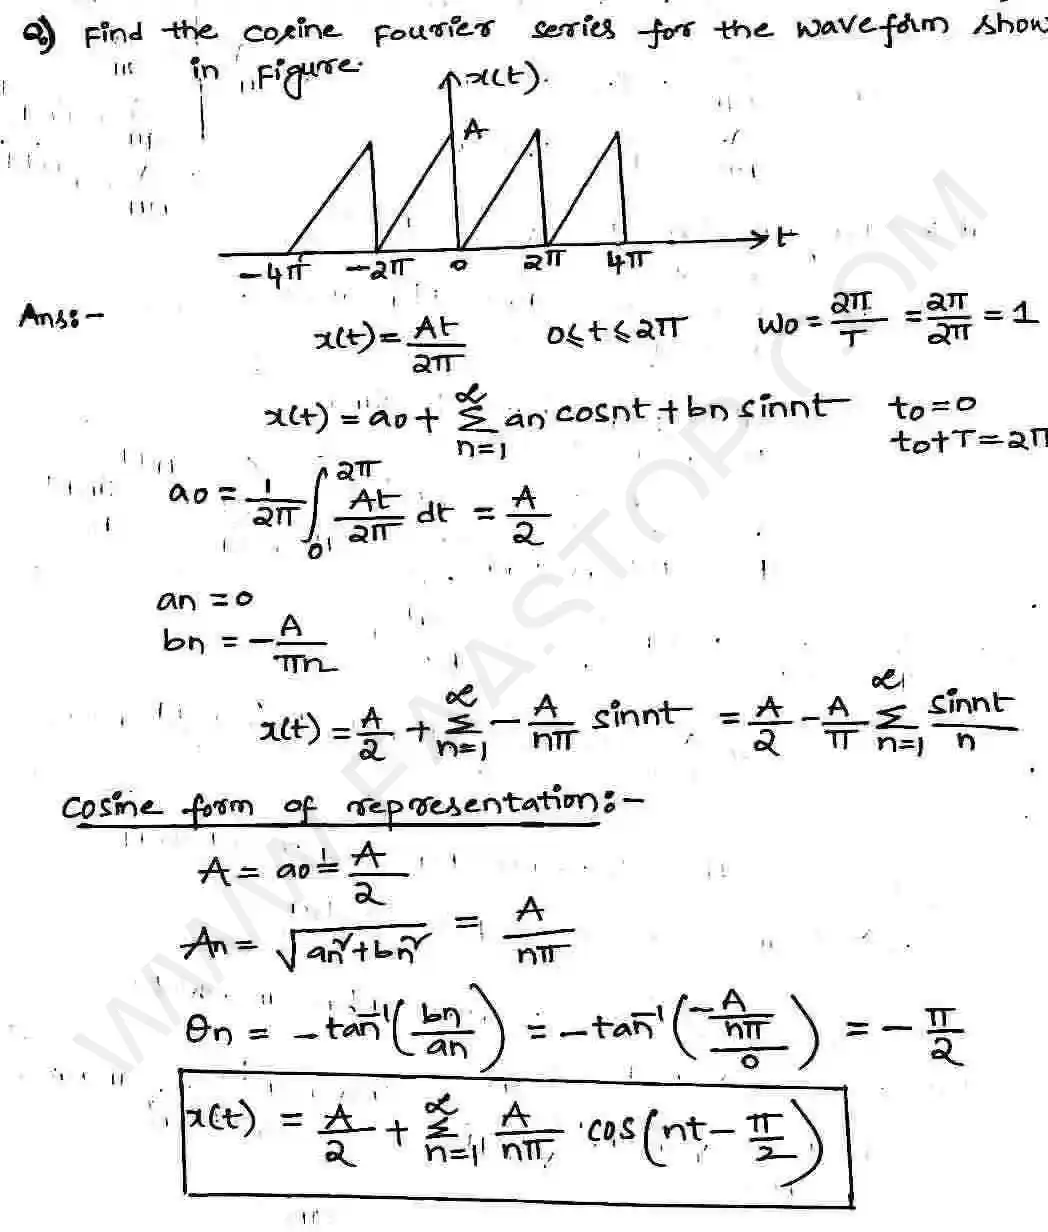 Q) Find the cosine Fourier series for the waveform show
in Figure.
x(t).
A
t
-4π -2π 0 2π 4π
Ans:-
x(t) = At/2π 0≤t≤2π ω0 = 2π/T = 2π/2π = 1
x(t) = a0 + ∑_{n=1}^{∞} an cosnt + bn sinnt t0=0
t0+T=2π
a0 = 1/2π ∫_0^{2π} At/2π dt = A/2
an = 0
bn = -A/πn
x(t) = A/2 + ∑_{n=1}^{∞} - A/nπ sinnt = A/2 - A/π ∑_{n=1}^{∞} sinnt/n
Cosine form of representation:-
A = a0 = A/2
An = √(an²+bn²) = A/nπ
θn = -tan⁻¹(bn/an) = -tan⁻¹((-A/nπ)/0) = -π/2
x(t) = A/2 + ∑_{n=1}^{∞} A/nπ cos(nt - π/2)
WWW.FAASTOP.COM